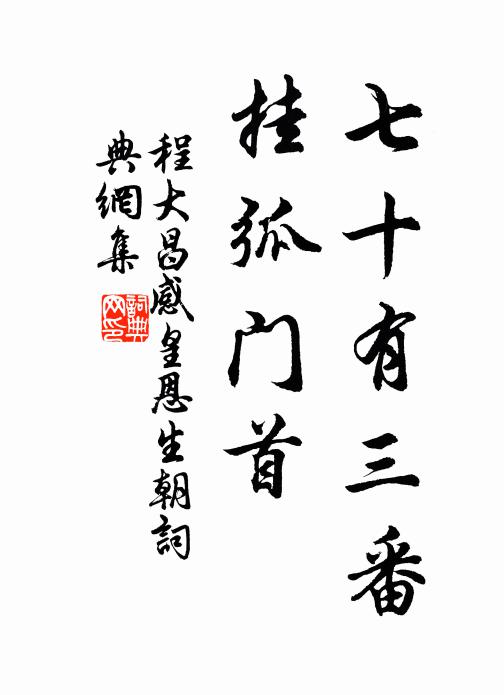 七十有三番
挂弧门首
程大昌感皇恩生朝詞
典網集
詞典
网印